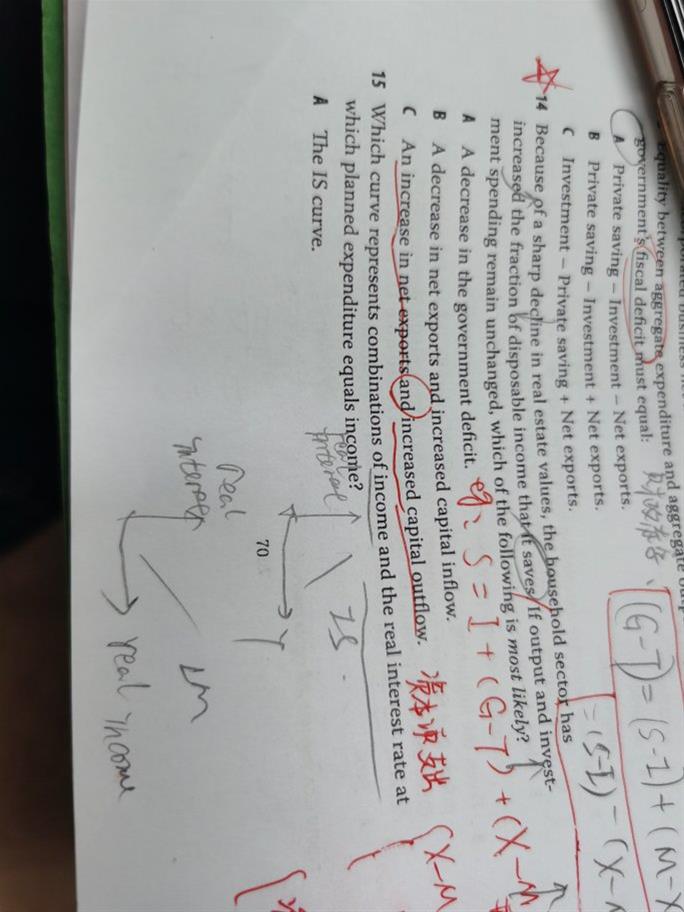 Equality between aggregate expenditure and aggregate
government's fiscal deficit must equal:
A Private saving – Investment – Net exports.
B Private saving – Investment + Net exports.
C Investment – Private saving + Net exports.
(G-T) = (S-I) + (M-X
= (S-I) - (X-
14 Because of a sharp decline in real estate values, the household sector has
increased the fraction of disposable income that it saves. If output and invest-
ment spending remain unchanged, which of the following is most likely?
A A decrease in the government deficit.
eg: S = I + (G-T) + (X-M
B A decrease in net exports and increased capital inflow.
C An increase in net exports and increased capital outflow.
(X-M
15 Which curve represents combinations of income and the real interest rate at
which planned expenditure equals income?
A The IS curve.
real
interest
IS
Y
70
real
interest
LM
real income